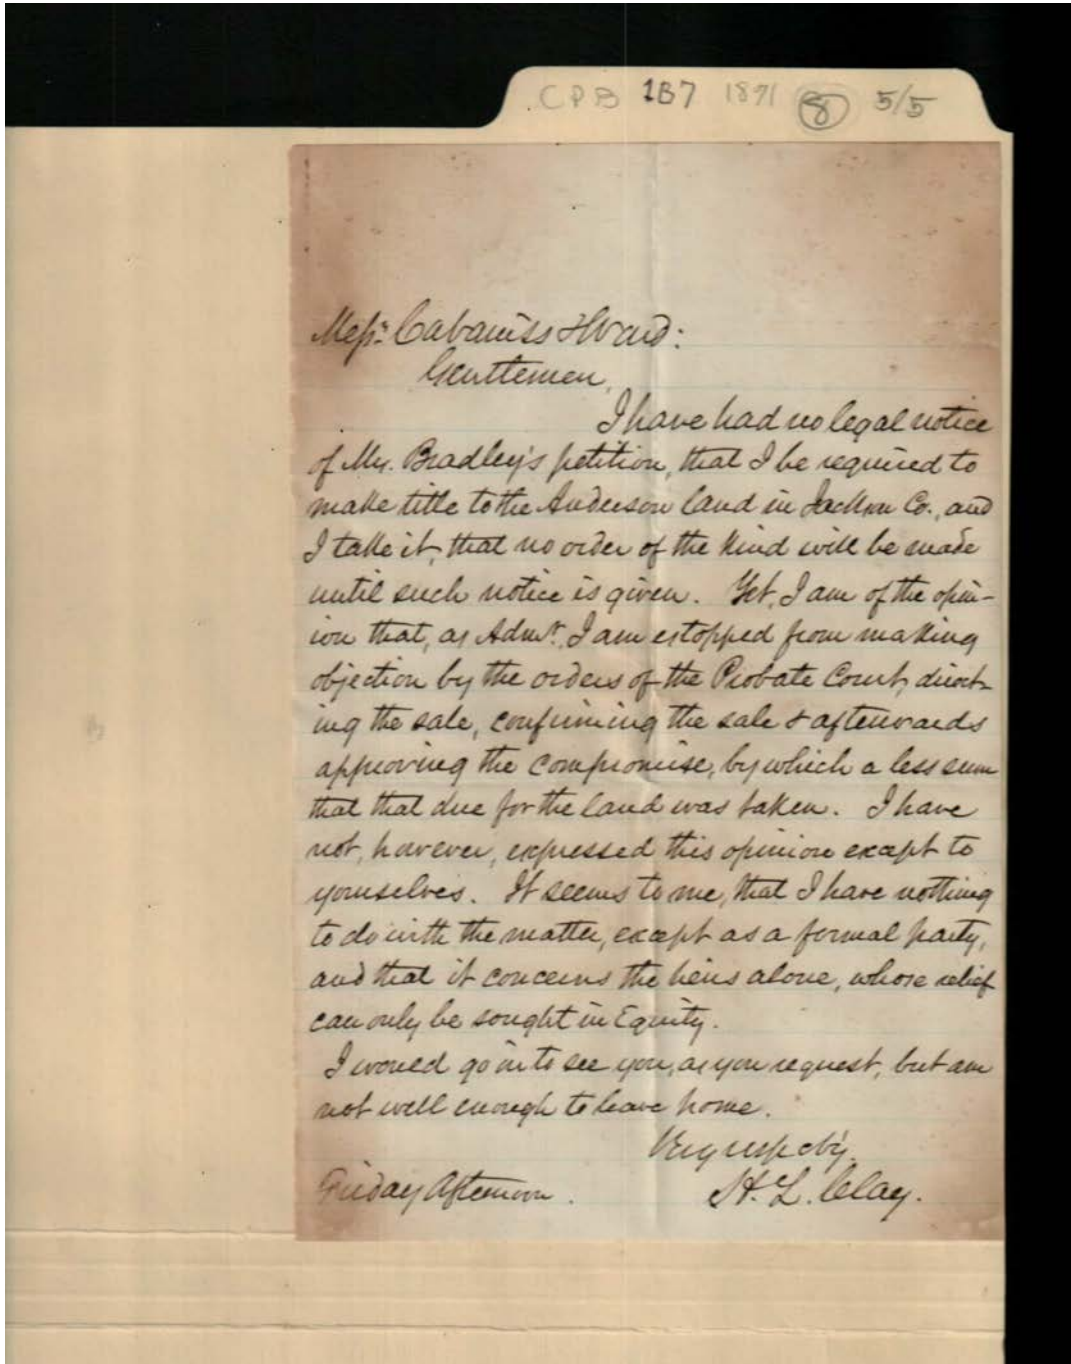 CPB 1B7 1871 8 5/5
Messrs Cabaniss & Ward:
Gentlemen,
I have had no legal notice
of Mr. Bradley's petition, that I be required to
make title to the Anderson land in Jackson Co., and
I take it, that no order of the kind will be made
until such notice is given. Yet, I am of the opin-
ion that, as Admr. I am estopped from making
objection by the orders of the Probate Court, direct-
ing the sale, confirming the sale & afterwards
approving the compromise, by which a less sum
that that due for the land was taken. I have
not, however, expressed this opinion except to
yourselves. It seems to me, that I have nothing
to do with the matter, except as a formal party,
and that it concerns the heirs alone, whose relief
can only be sought in Equity.
I would go in to see you, as you request, but am
not well enough to leave home.
Very respectly.
Friday Afternoon. H. L. Clay.